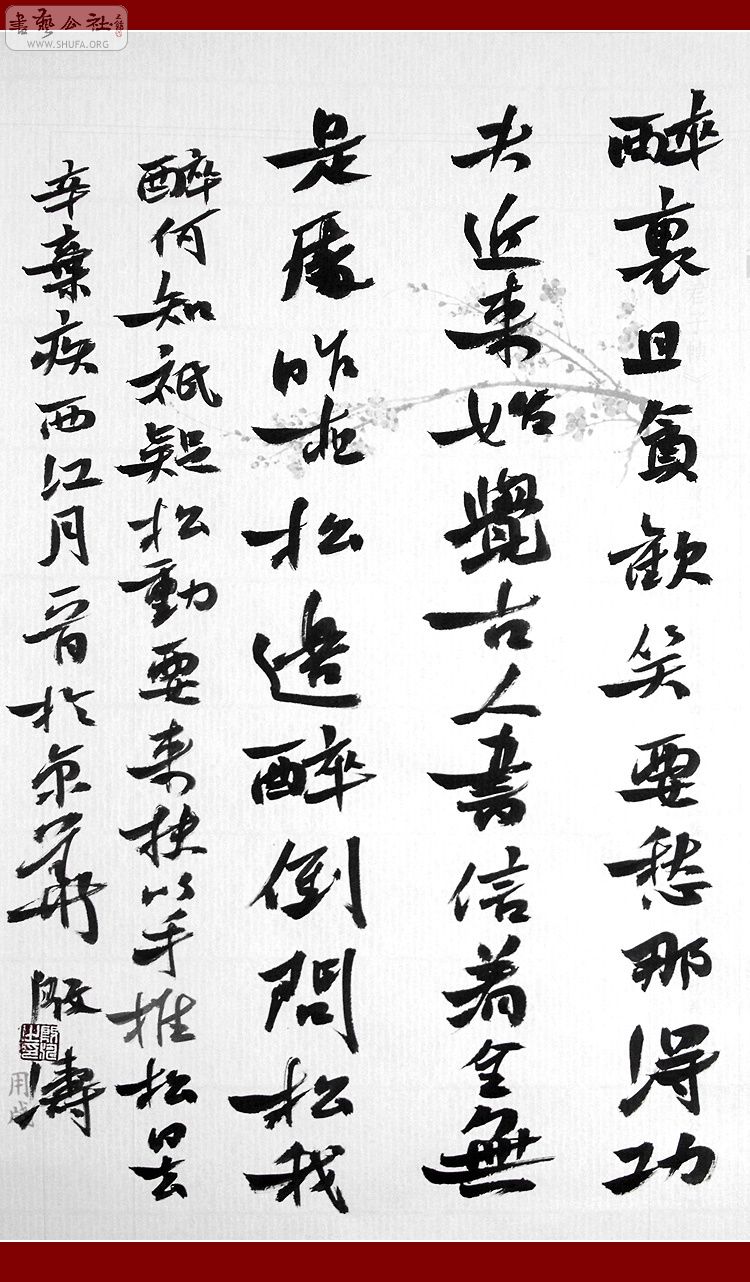 書藝公社
WWW.SHUFA.ORG
醉裏且貪歡笑要愁那得功
夫近來始覺古人書信着全無
是處昨夜松邊醉倒問松我
醉何知祇疑松動要來扶以手推松曰去
辛棄疾西江月一首於京華 殷濤